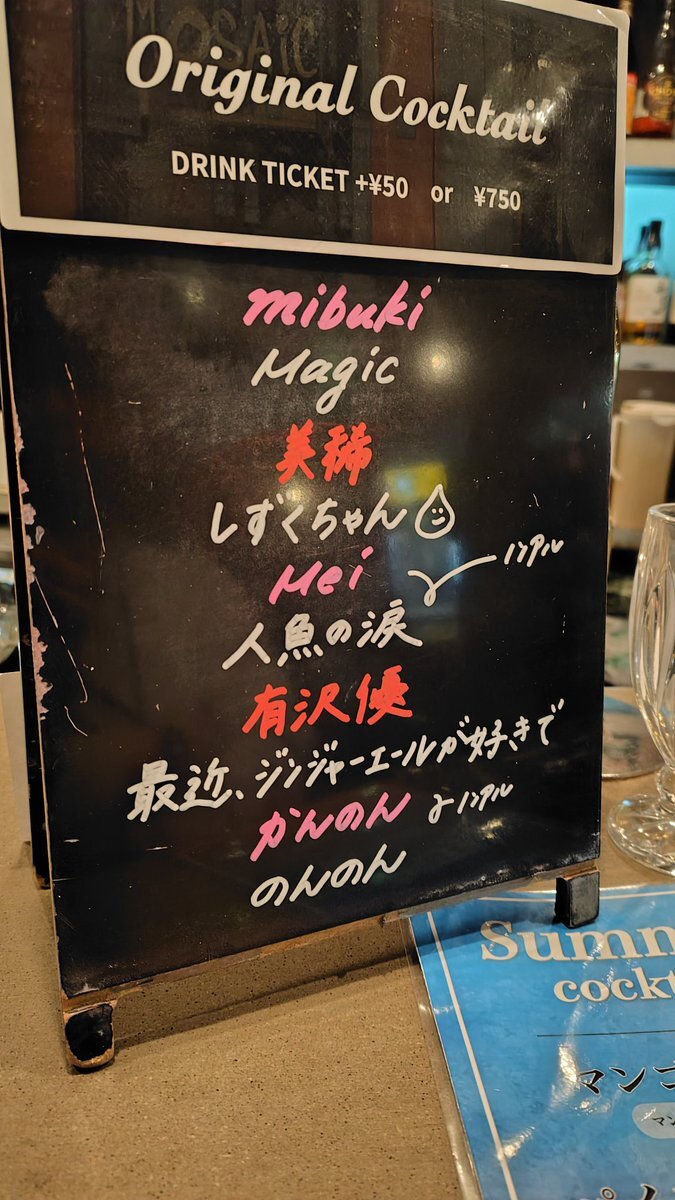 MOSAIC
Original Cocktail
DRINK TICKET +¥50 or ¥750
mibuki
Magic
美稀
しずくちゃん
Mei
ノンアル
人魚の涙
有沢優
最近、ジンジャーエールが好きで
かんのん
ノンアル
のんのん
Summ
cockt
マンゴ